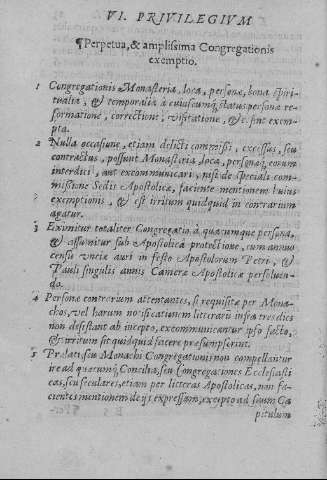 VI. PRIVILEGIVM
¶Perpetua, & amplissima Congregationis
exemptio.
1 Congregationis Monasteria, loca, personæ, bona spiri-
tualia, & temporalia à cuiuscunq; status personæ re-
formatione, correctione, visitatione, & c. sint exem-
pta.
2 Nulla occasione, etiam delicti commissi, excessus, seu
contractus, possunt Monasteria, loca, personæq; eorum
interdici, aut excommunicari, nisi de speciali com-
missione Sedis Apostolicæ, faciente mentionem huius
exemptionis, & est irritum quidquid in contrarium
agatur.
3 Eximitur totaliter Congregatio à quacumque persona,
& assumitur sub Apostolica protectione, cum annuo
censu vnciæ auri in festo Apostolorum Petri, &
Pauli singulis annis Cameræ Apostolicæ persoluen-
do.
4 Personæ contrarium attentantes, si requisitæ per Mona-
chos, vel harum notificationem litterarū infra tres dies
non desistant ab incepto, excommunicantur ipso facto,
& irritum sit quidquid facere præsumpserint.
5 Prælati, seu Monachi Congregationis non compellantur
ire ad quæcunq; Concilia, seu Congregationes Ecclesiasti
cas, seu seculares, etiam per litteras Apostolicas, non fa-
cientes mentionem de ijs expressam, excepto ad suum Ca
pitulum